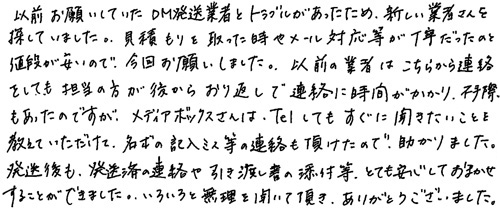 以前お願いしていたDM発送業者とトラブルがあったため、新しい業者さんを
探していました。見積もりを取った時やメール対応等が丁寧だったのと
値段が安いので、今回お願いしました。以前の業者はこちらから連絡
をしても担当の方が後からおり返しで連絡に時間がかかり、不手際
もあったのですが、メディアボックスさんは、Telしてもすぐに聞きたいことを
教えていただけて、名ボの記入ミス等の連絡も頂けたので、助かりました。
発送後も、発送済の連絡や引き渡し書の添付等、とても安心しておまかせ
することができました。いろいろと無理を聞いて頂き、ありがとうございました。